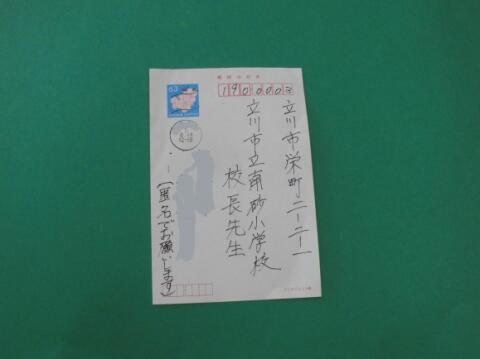 郵便はがき
63
1900003
立川市栄町二ー二一ー一
立川市立南砂小学校
校長先生
(匿名でお願いします)